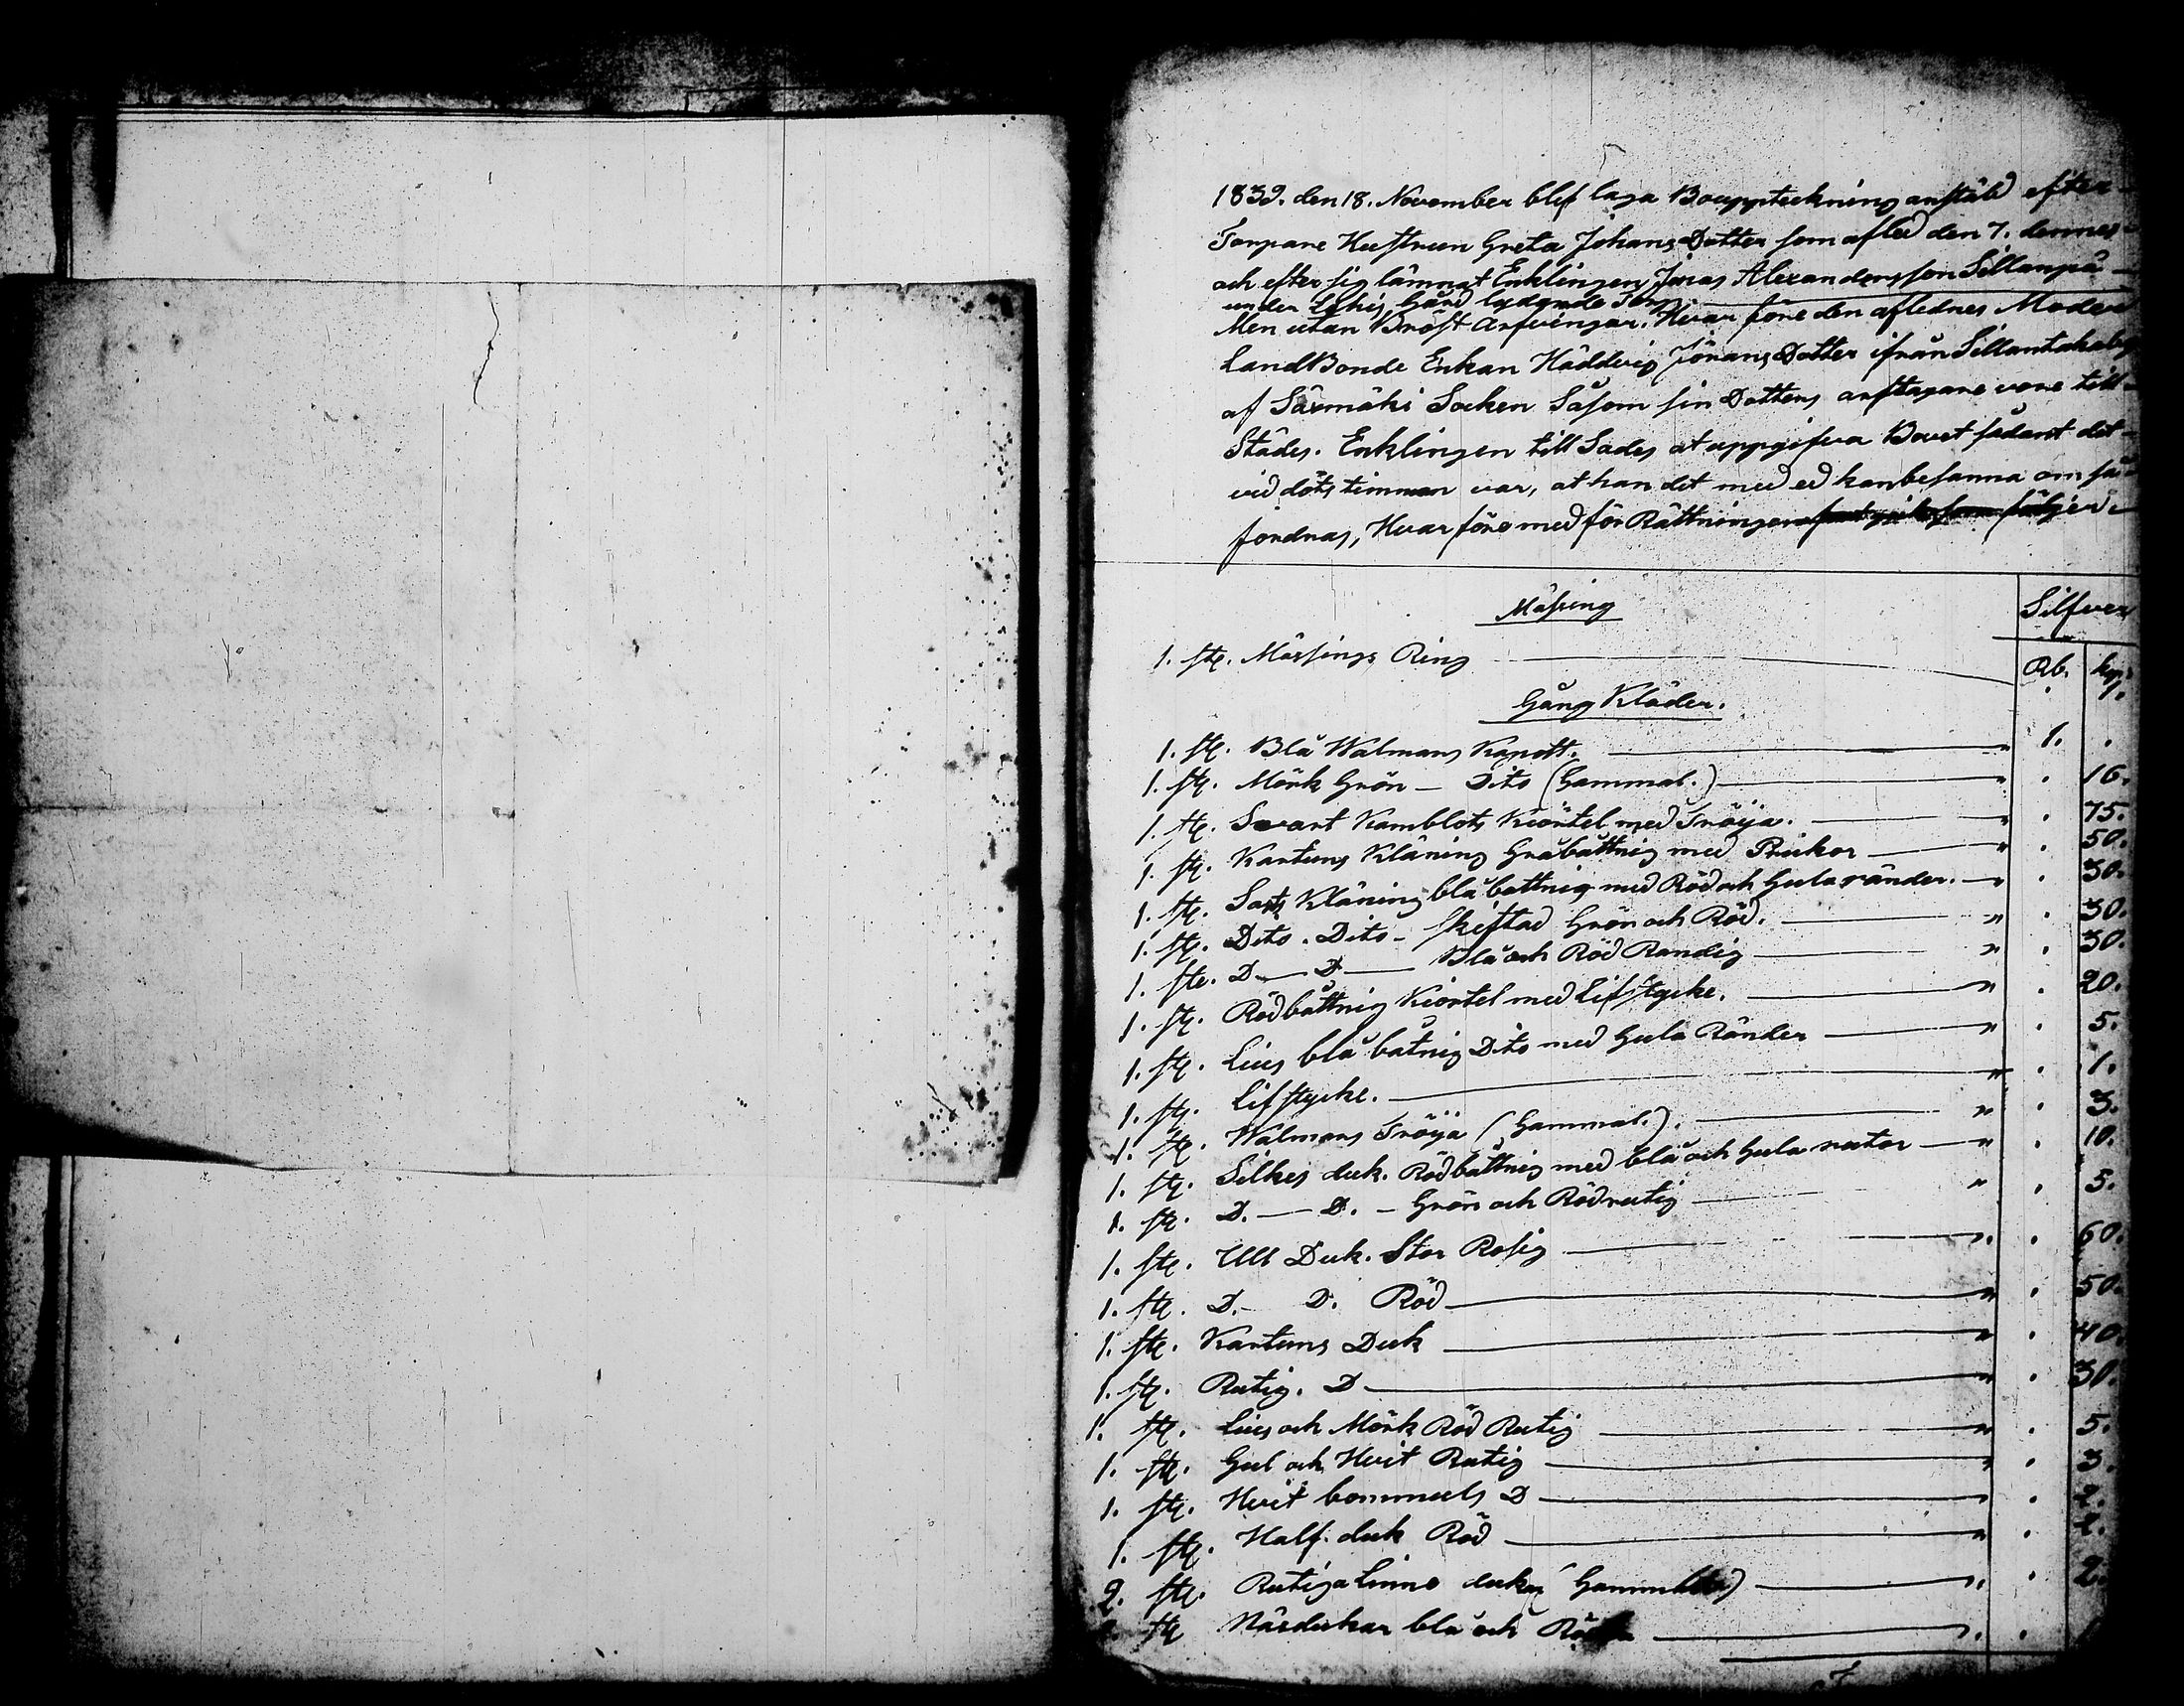 1839. den 18. November blef laga Bouppteckning anstäld efter
Torpare Hustrun Greta Johans Dotter som afled den 7. dennes
och efter sig lämnat Enklingen Jonas Alexandersson Sillanpä
under Lehis Gård lydande Torp.
Men utan Bröst Arfvingar. Hvar före den aflednes Moder
LandBonde Enkan Häddvig Jörans Dotter ifrån Sillantaka by
af Säxmäki Socken Såsom sin Dotters arftagare vore till
Städes. Enklingen till Sades at uppgifva Boet sådant det
vid döts timman var, at han det med ed kan besanna om så
fordras, Hvar före med för Rättningen
Mässing
Silfver
1. st. Mässings Ring
Rb. kop.
Gång Kläder.
1. st. Blå Walmans Kapott. " 1. .
1. st. Mörk Grön - Dito (Gammal.) " . 16.
1. st. Svart Kamblots Kiörtel med Tröija. " . 75.
1. st. Kartuns Kläning Gråbåttnig med Prickor " . 50.
1. st. Sarts Kläning blåbottnig med Röd och Gula ränder. " . 30.
1. st. Dito. Dito - skiftad Grön och Röd. " . 30.
1. st. D — D — Blå och Röd Randig " . 30.
1. st. Rödbåttnig Kiortel med Lifstycke. " . 20.
1. st. Lius blå batnig Dito med Gula Ränder " . 5.
1. st. Lifstycke. " . 1.
1. st. Walmans Tröija (Gammal.). " . 3.
1. st. Silkes duk. Rödbåttnig med blå och Gula rutor " . 10.
1. st. D. — D. - Grön och Rödrutig " . 5.
1. st. Ull Duk. Stor Rosig " . 60.
1. st. D. - D. Röd " . 50.
1. st. Kartuns Duk " . 40.
1. st. Rutig. D " . 30.
1. st. Lius och Mörk Röd Rutig " . 5.
1. st. Gul och Hvit Rutig " . 3.
1. st. Hvit bommuls D . 2.
1. st. Half. duk Röd " . 2.
2. st. Rutiga Linne dukar (Gammla) " . 2.
st Näsdukar blå och Röda " .